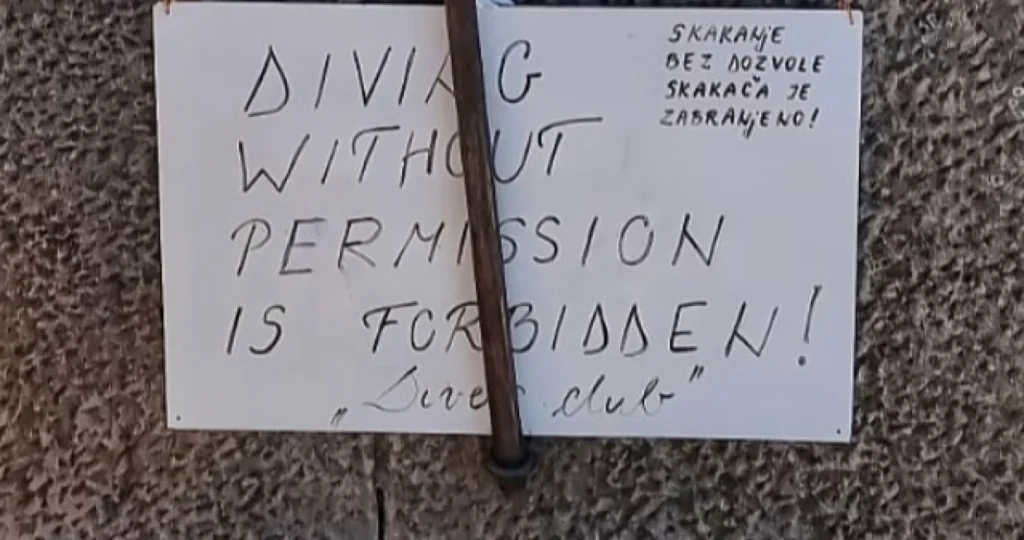 DIVING
WITHOUT
PERMISSION
IS FORBIDDEN!
„Diver club”
SKAKANjE
BEZ DOZVOLE
SKAKAČA JE
ZABRANjENO!